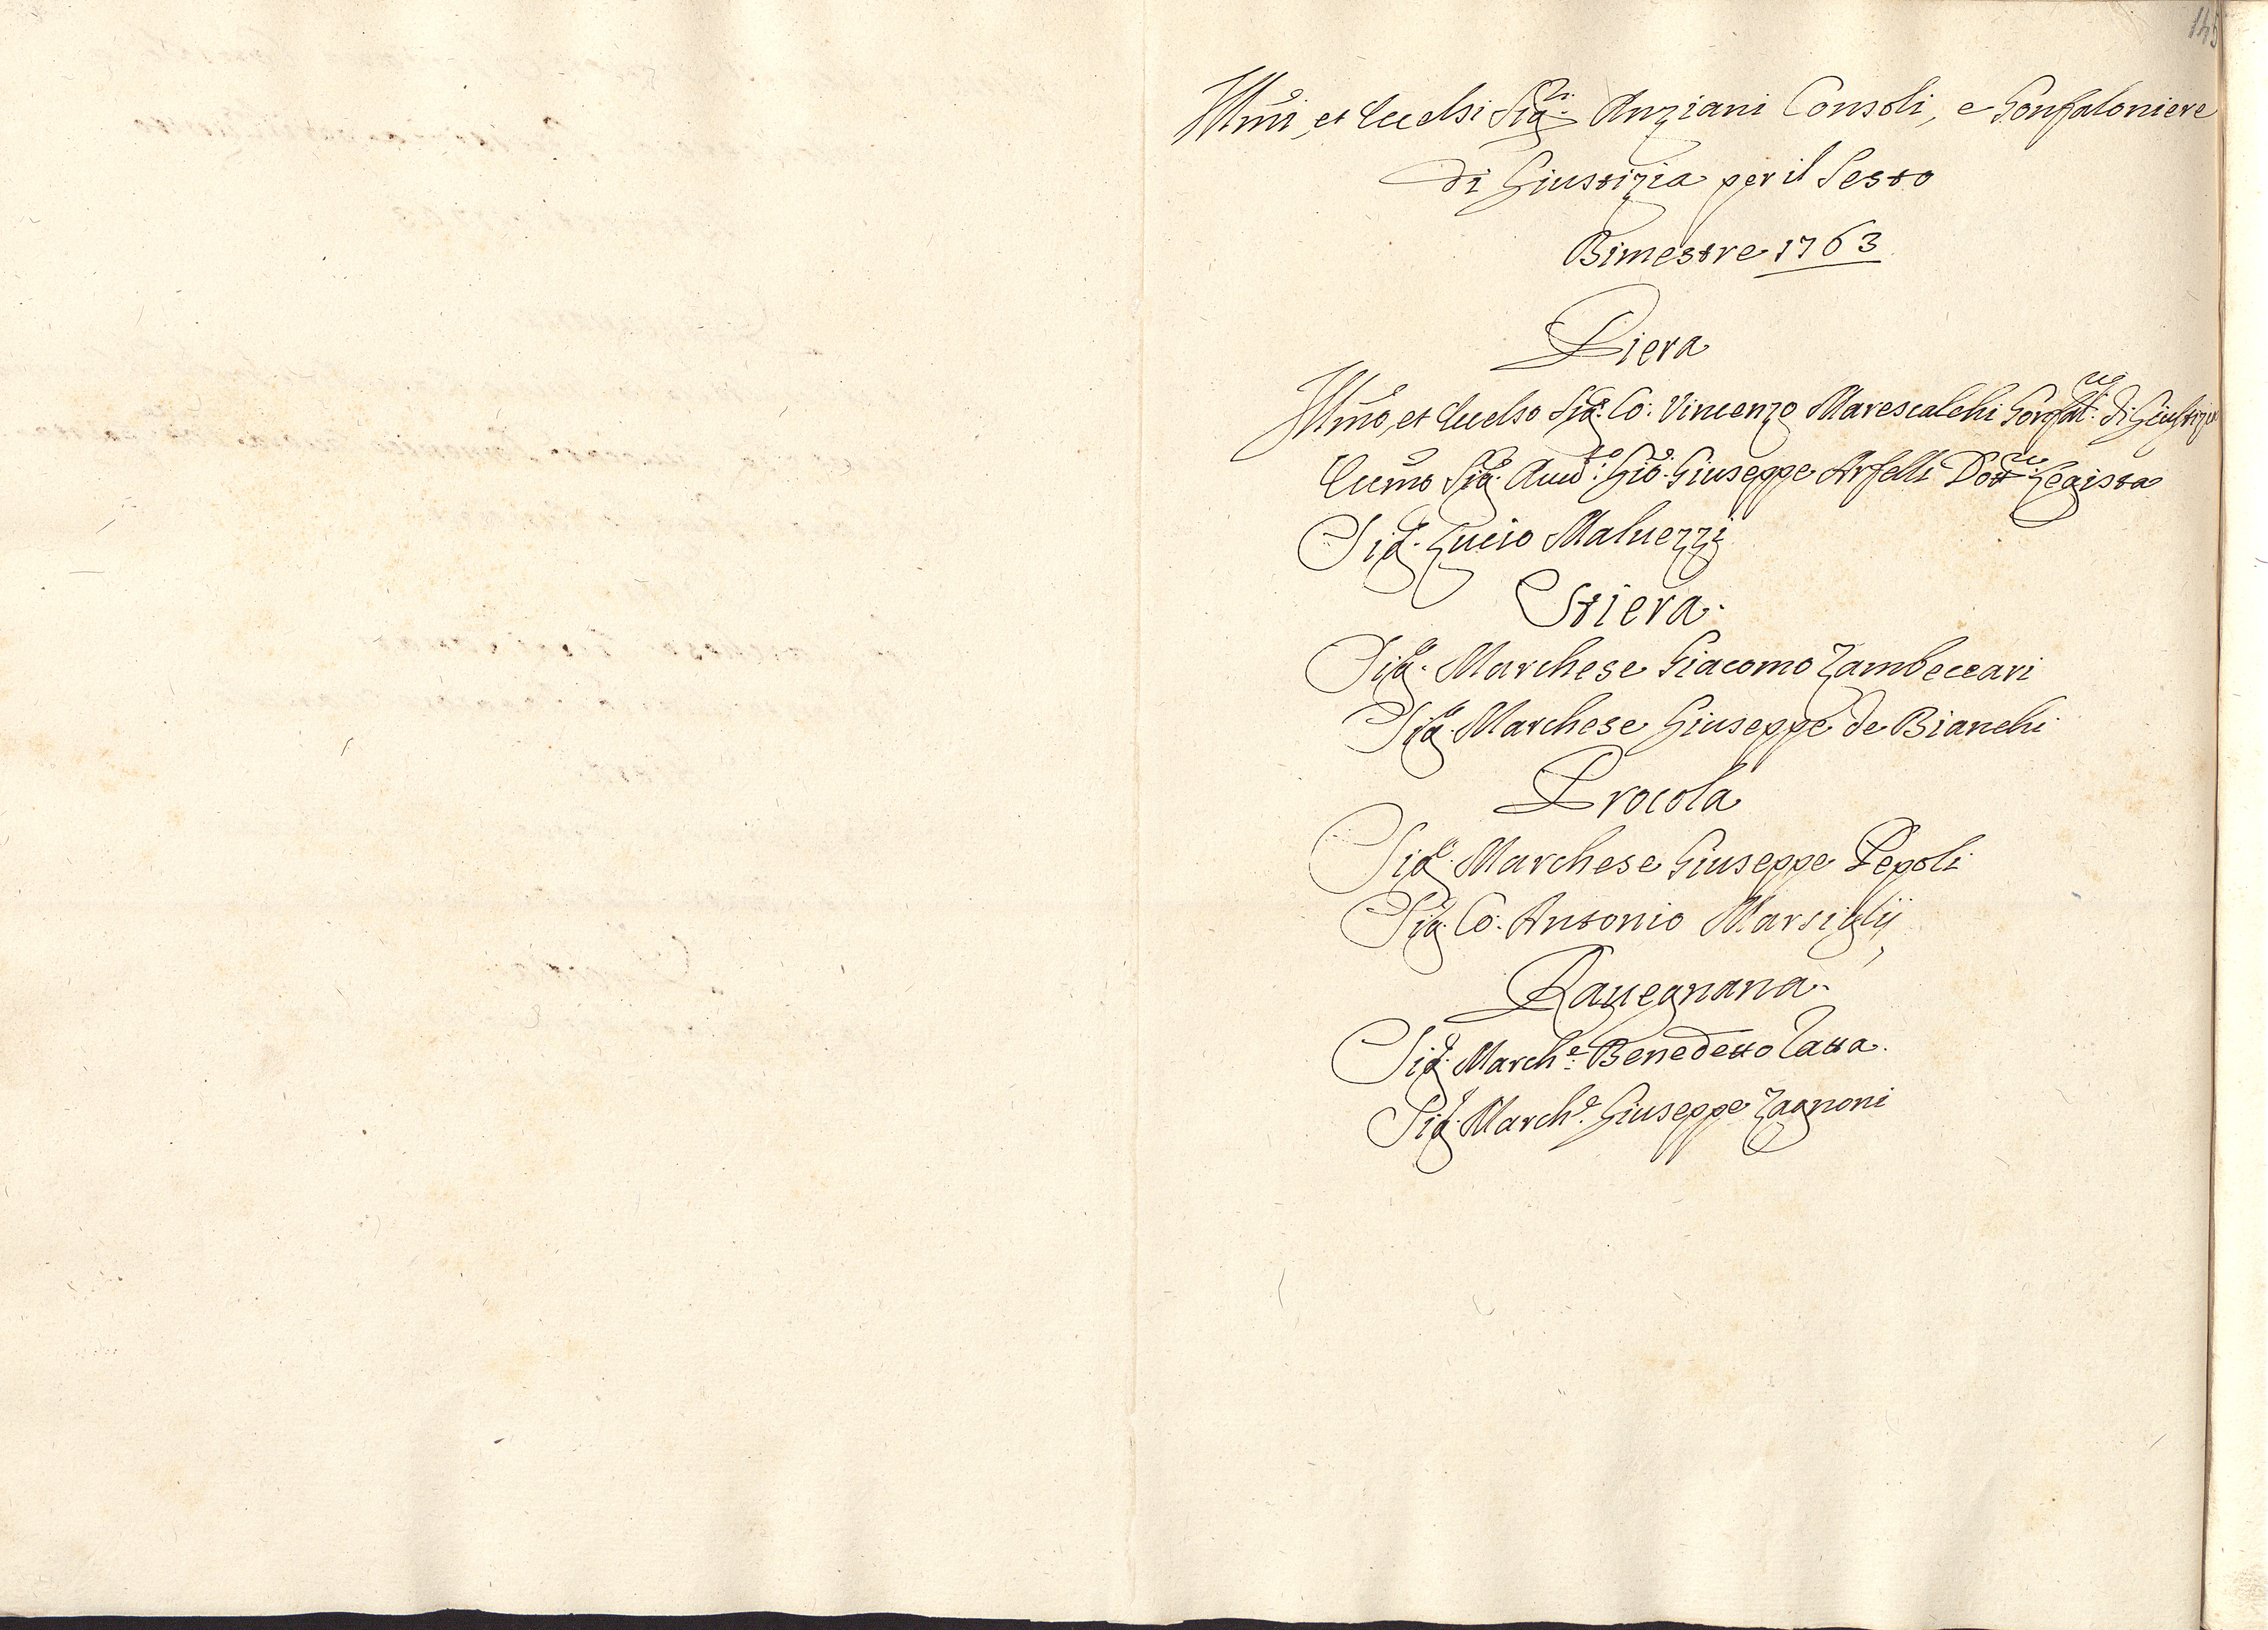 145
Illmi, et Eccelsi Sigri. Anziani Consoli, e Gonfaloniere
di Giustizia per il Sesto
Bimestre 1763
Piera
Illmo, et Eccelso Sigr. Co: Vincenzo Marescalchi Gonfalre: di Giustizia
Eccmo Sigr. Avvo: Gio: Giuseppe Arfelli Dottre: Legista
Sigr. Lucio Maluezzi
Stiera.
Sigr. Marchese Giacomo Zambeccari
Sigr. Marchese Giuseppe de Bianchi
Procola
Sigr. Marchese Giuseppe Pepoli
Sigr. Co: Antonio Marsiglij
Rauegnana.
Sigr. Marche: Benedetto Tatta.
Sigr. Marche. Giuseppe Zagnoni